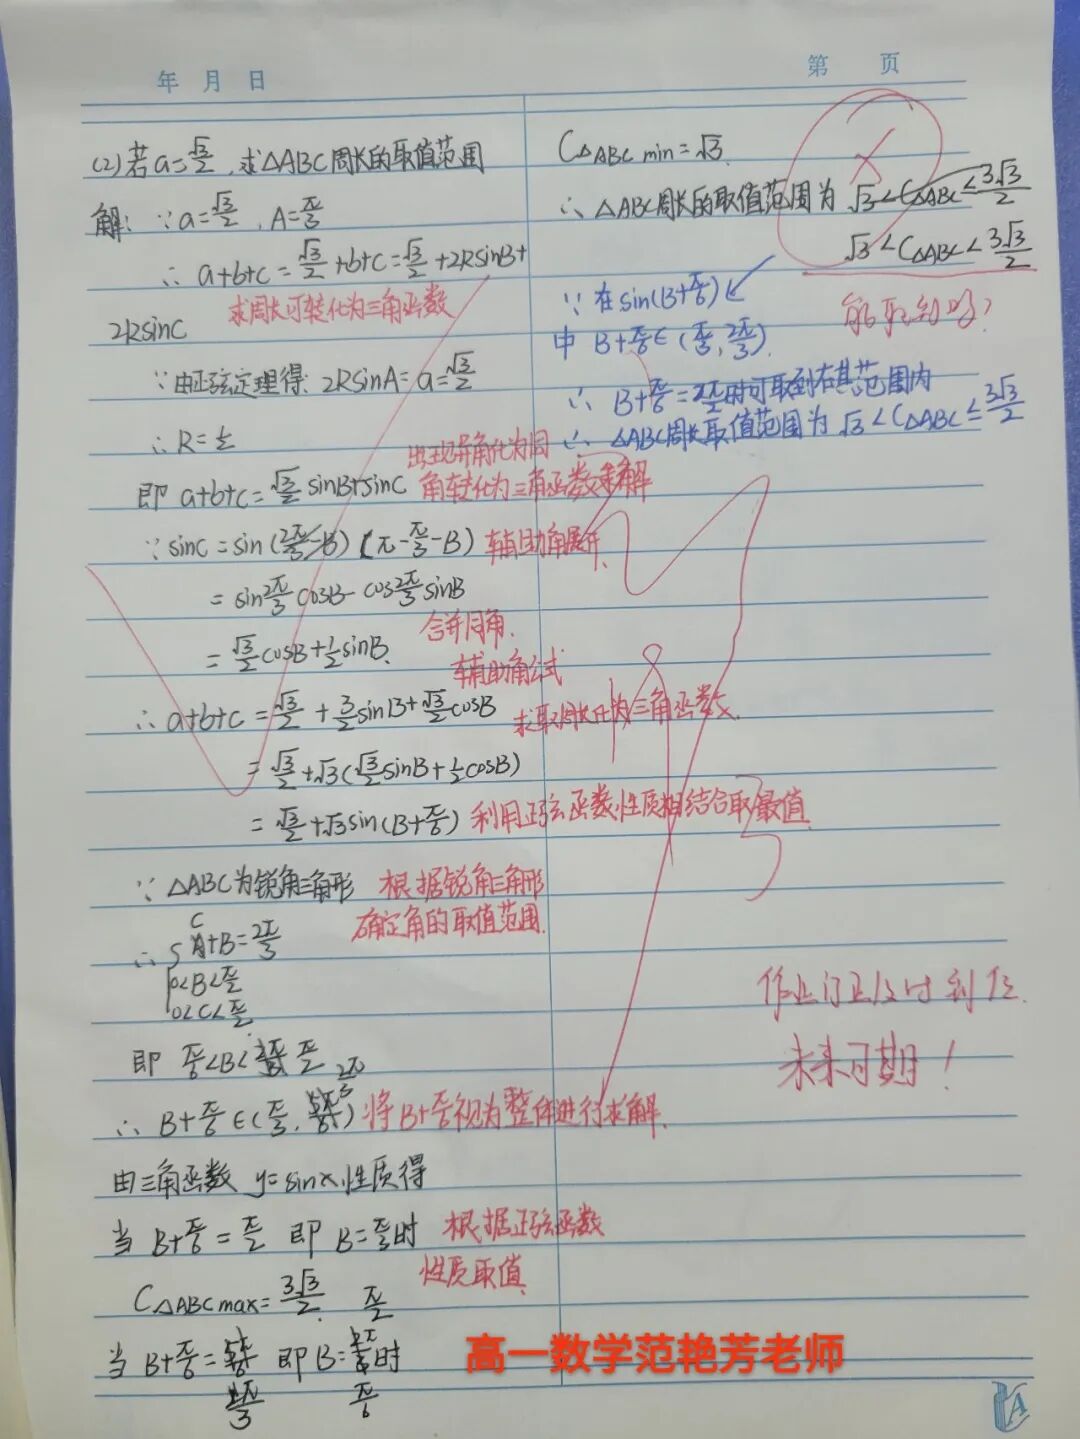 年 月 日
第 页
(2)若a=√3/2,求△ABC周长的取值范围
解:∵a=√3/2,A=π/3
∴a+b+c=√3/2+b+c=√3/2+2RsinB+
2RsinC
求周长可转化为三角函数
∵由正弦定理得:2RsinA=a=√3/2
∴R=1/2
出现异角化为同
即 a+b+c=√3/2 sinB+sinC
角转化为三角函数求解
∵sinC=sin(2π/3-B)(π-π/3-B)
辅助角展开.
=sin2π/3 cosB-cos2π/3 sinB
合并同角.
=√3/2 cosB+1/2 sinB.
辅助角公式
∴a+b+c=√3/2+3/2 sinB+√3/2 cosB
求取周长化为三角函数.
=√3/2+√3(√3/2 sinB+1/2 cosB)
=√3/2+√3sin(B+π/6)
利用正弦函数性质相结合取最值
∵△ABC为锐角三角形
根据锐角三角形
确定角的取值范围.
∴{C+B=2π/3
0<B<π/2
0<C<π/2
即 π/6<B<π/2
∴B+π/6∈(π/3,2π/3)
将B+π/6视为整体进行求解.
由三角函数 y=sinx性质得
当 B+π/6=π/2 即 B=π/3时
根据正弦函数
性质取值
C△ABCmax=3√3/2. π/2
当 B+π/6= 即B= 时
2π/3 π/6
C△ABC min=√3.
∴△ABC周长的取值范围为 √3<C△ABC≤3√3/2
√3<C△ABC<3√3/2
能取到吗?
∵在sin(B+π/6)
中 B+π/6∈(π/3,2π/3).
∴B+π/6=π/2时可取到在其范围内
∴△ABC周长取值范围为 √3<C△ABC≤3√3/2
作业订正及时到位.
未来可期!
高一数学范艳芳老师